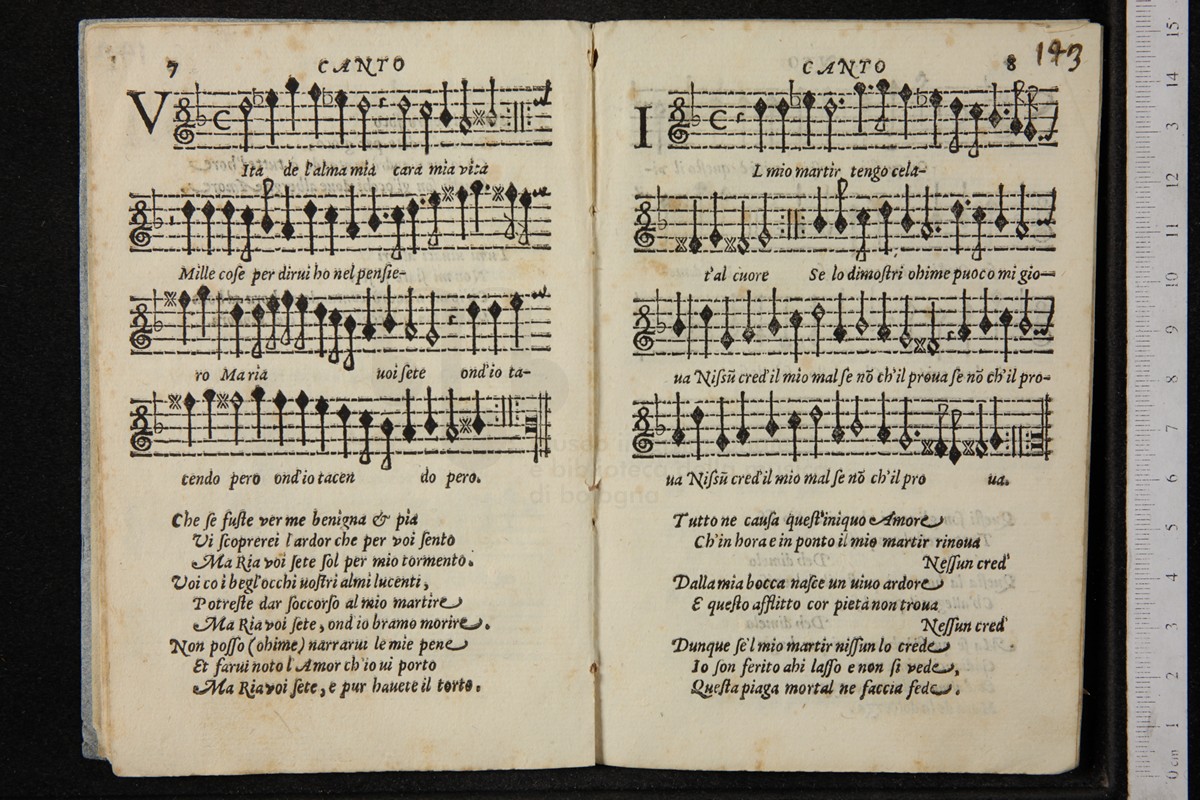 7 CANTO
VIta de l'alma mia cara mia vita
Mille cose per dirui ho nel pensie-
ro Maria uoi sete ond'io ta-
cendo pero ond'io tacen do pero.
Che se fuste ver me benigna & pia
Vi scoprerei l'ardor che per voi sento
Ma Ria voi sete sol per mio tormento.
Voi co i begl'occhi uostri almi lucenti,
Potreste dar soccorso al mio martire
Ma Ria voi sete, ond'io bramo morire.
Non posso (ohime) narrarui le mie pene
Et farui noto l'Amor ch'io ui porto
Ma Ria voi sete, e pur hauete il torto.
CANTO 8 143
IL mio martir tengo cela-
t'al cuore Se lo dimostri ohime puoco mi gio-
ua Nissũ cred'il mio mal se nõ ch'il proua se nõ ch'il pro-
ua Nissũ cred'il mio mal se nõ ch'il pro ua.
Tutto ne causa quest'iniquo Amore
Ch'in hora e in ponto il mio martir rinoua
Nessun cred'
Dalla mia bocca nasce un uiuo ardore
E questo afflitto cor pietà non troua
Nessun cred'
Dunque se'l mio martir nissun lo crede
Io son ferito ahi lasso e non si vede,
Questa piaga mortal ne faccia fede.
museo in
e biblioteca
di bologna
0 cm 1 2 3 4 5 6 7 8 9 10 11 12 13 14 15